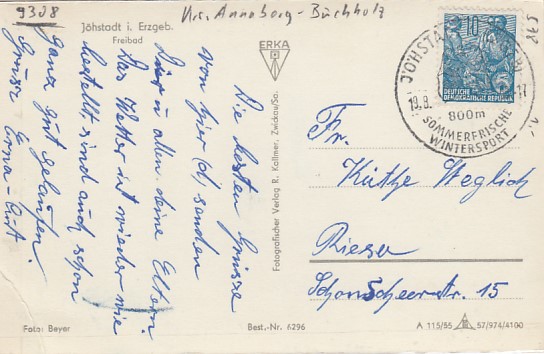 9308
Kr. Annaberg-Buchholz
Jöhstadt i. Erzgeb.
Freibad
ERKA
Die besten Grüsse
von hier senden
Dir u. allen deine Eltern.
Das Wetter ist wieder wie
bestellt, sind auch schon
ganz gut gelaufen.
Grüsse Erna-Curt.
Foto: Beyer
Best.-Nr. 6296
Fotografischer Verlag R. Kallmer, Zwickau/Sa.
10
DEUTSCHE
DEMOKRATISCHE REPUBLIK
5
JÖHSTADT
19.8.
800m
SOMMERFRISCHE
WINTERSPORT
Fr.
Käthe Weglich
Riesa
Schonscheerstr. 15
A 115/55 57/974/4100